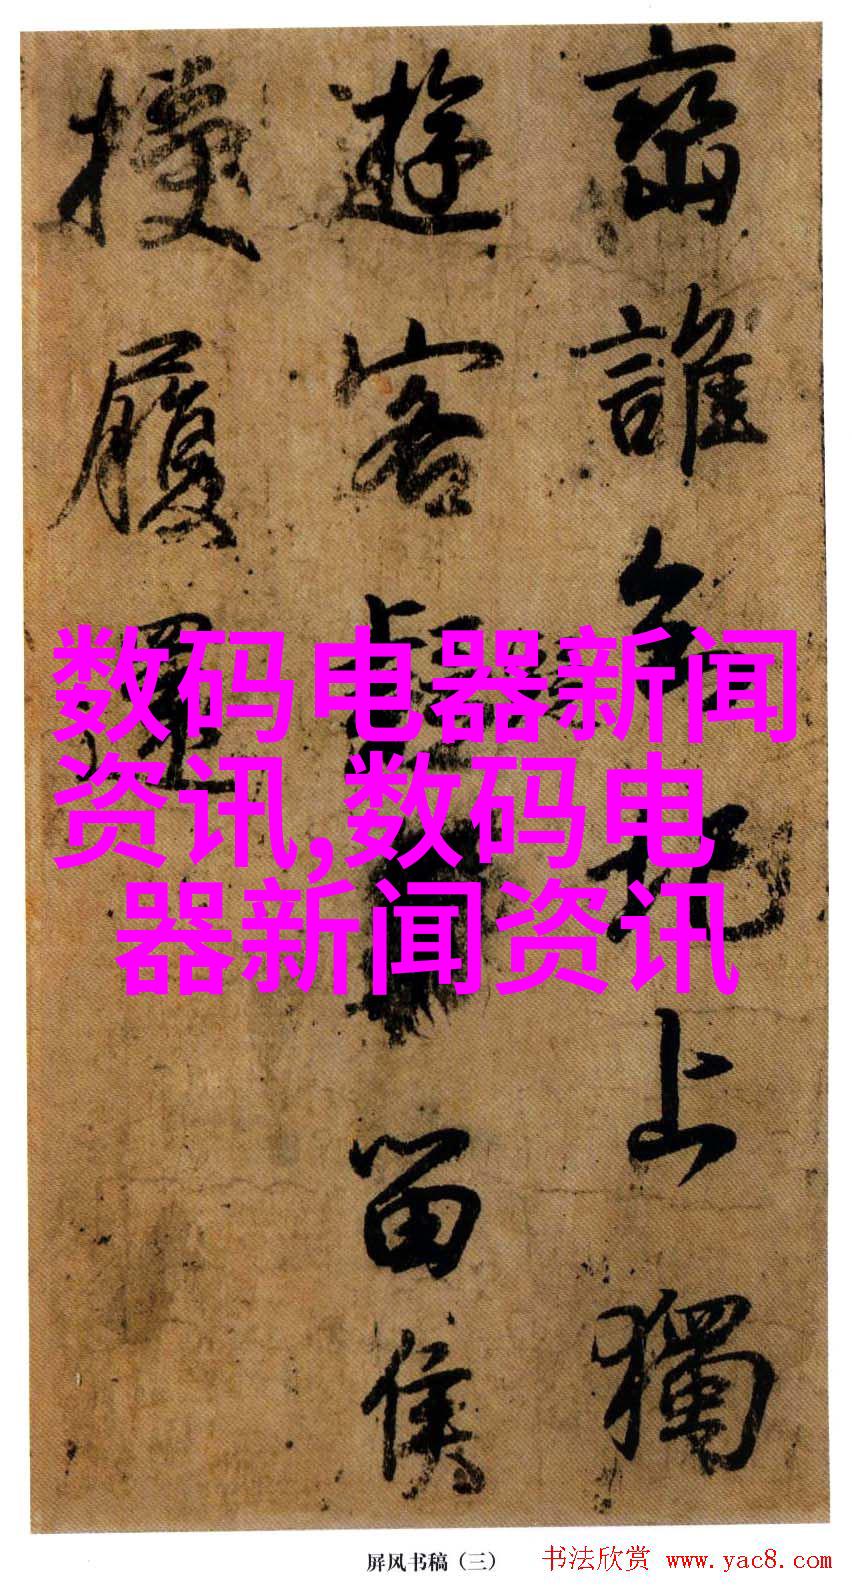 峦誰知圯上獨
遊客
留侯
授履還
数码电器新闻
资讯,数码电
器新闻资讯
屏风书稿（三）
书法欣赏 www.yac8.com